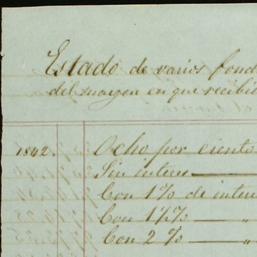 Estado de varios fond
del margen en que recibio
1842. Ocho por ciento
Sin interes — 
Con 1% de inter
Con 1½% — "
Con 2% — "